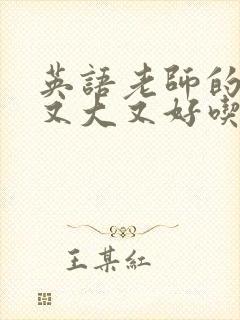 英語老師的
又大又好喫
王某紅